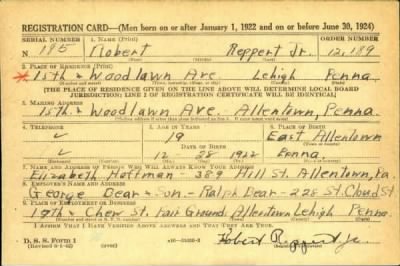 REGISTRATION CARD—(Men born on or after January 1, 1922 and on or before June 30, 1924)
SERIAL NUMBER 1. NAME (Print) ORDER NUMBER
N 185 Robert Reppert Jr. 12,189
(First) (Middle) (Last)
2. PLACE OF RESIDENCE (Print)
* 15th & Woodlawn Ave. Lehigh Penna.
[THE PLACE OF RESIDENCE GIVEN ON THE LINE ABOVE WILL DETERMINE LOCAL BOARD
JURISDICTION; LINE 2 OF REGISTRATION CERTIFICATE WILL BE IDENTICAL]
3. MAILING ADDRESS
15th & Woodlawn Ave. Allentown, Penna.
4. TELEPHONE 5. AGE IN YEARS 6. PLACE OF BIRTH
19 East Allentown
DATE OF BIRTH
12 28 1922 Penna.
7. NAME AND ADDRESS OF PERSON WHO WILL ALWAYS KNOW YOUR ADDRESS
Elizabeth Hottman 389 Hill St. Allentown, Pa.
8. EMPLOYER'S NAME AND ADDRESS
George Dear & Son - Ralph Dear - 228 St.
9. PLACE OF EMPLOYMENT OR BUSINESS
19th & Chew St. Fair Ground Allentown Lehigh Penna.
I AFFIRM THAT I HAVE VERIFIED ABOVE ANSWERS AND THAT THEY ARE TRUE.
D. S. S. Form 1
Robert Reppert Jr.